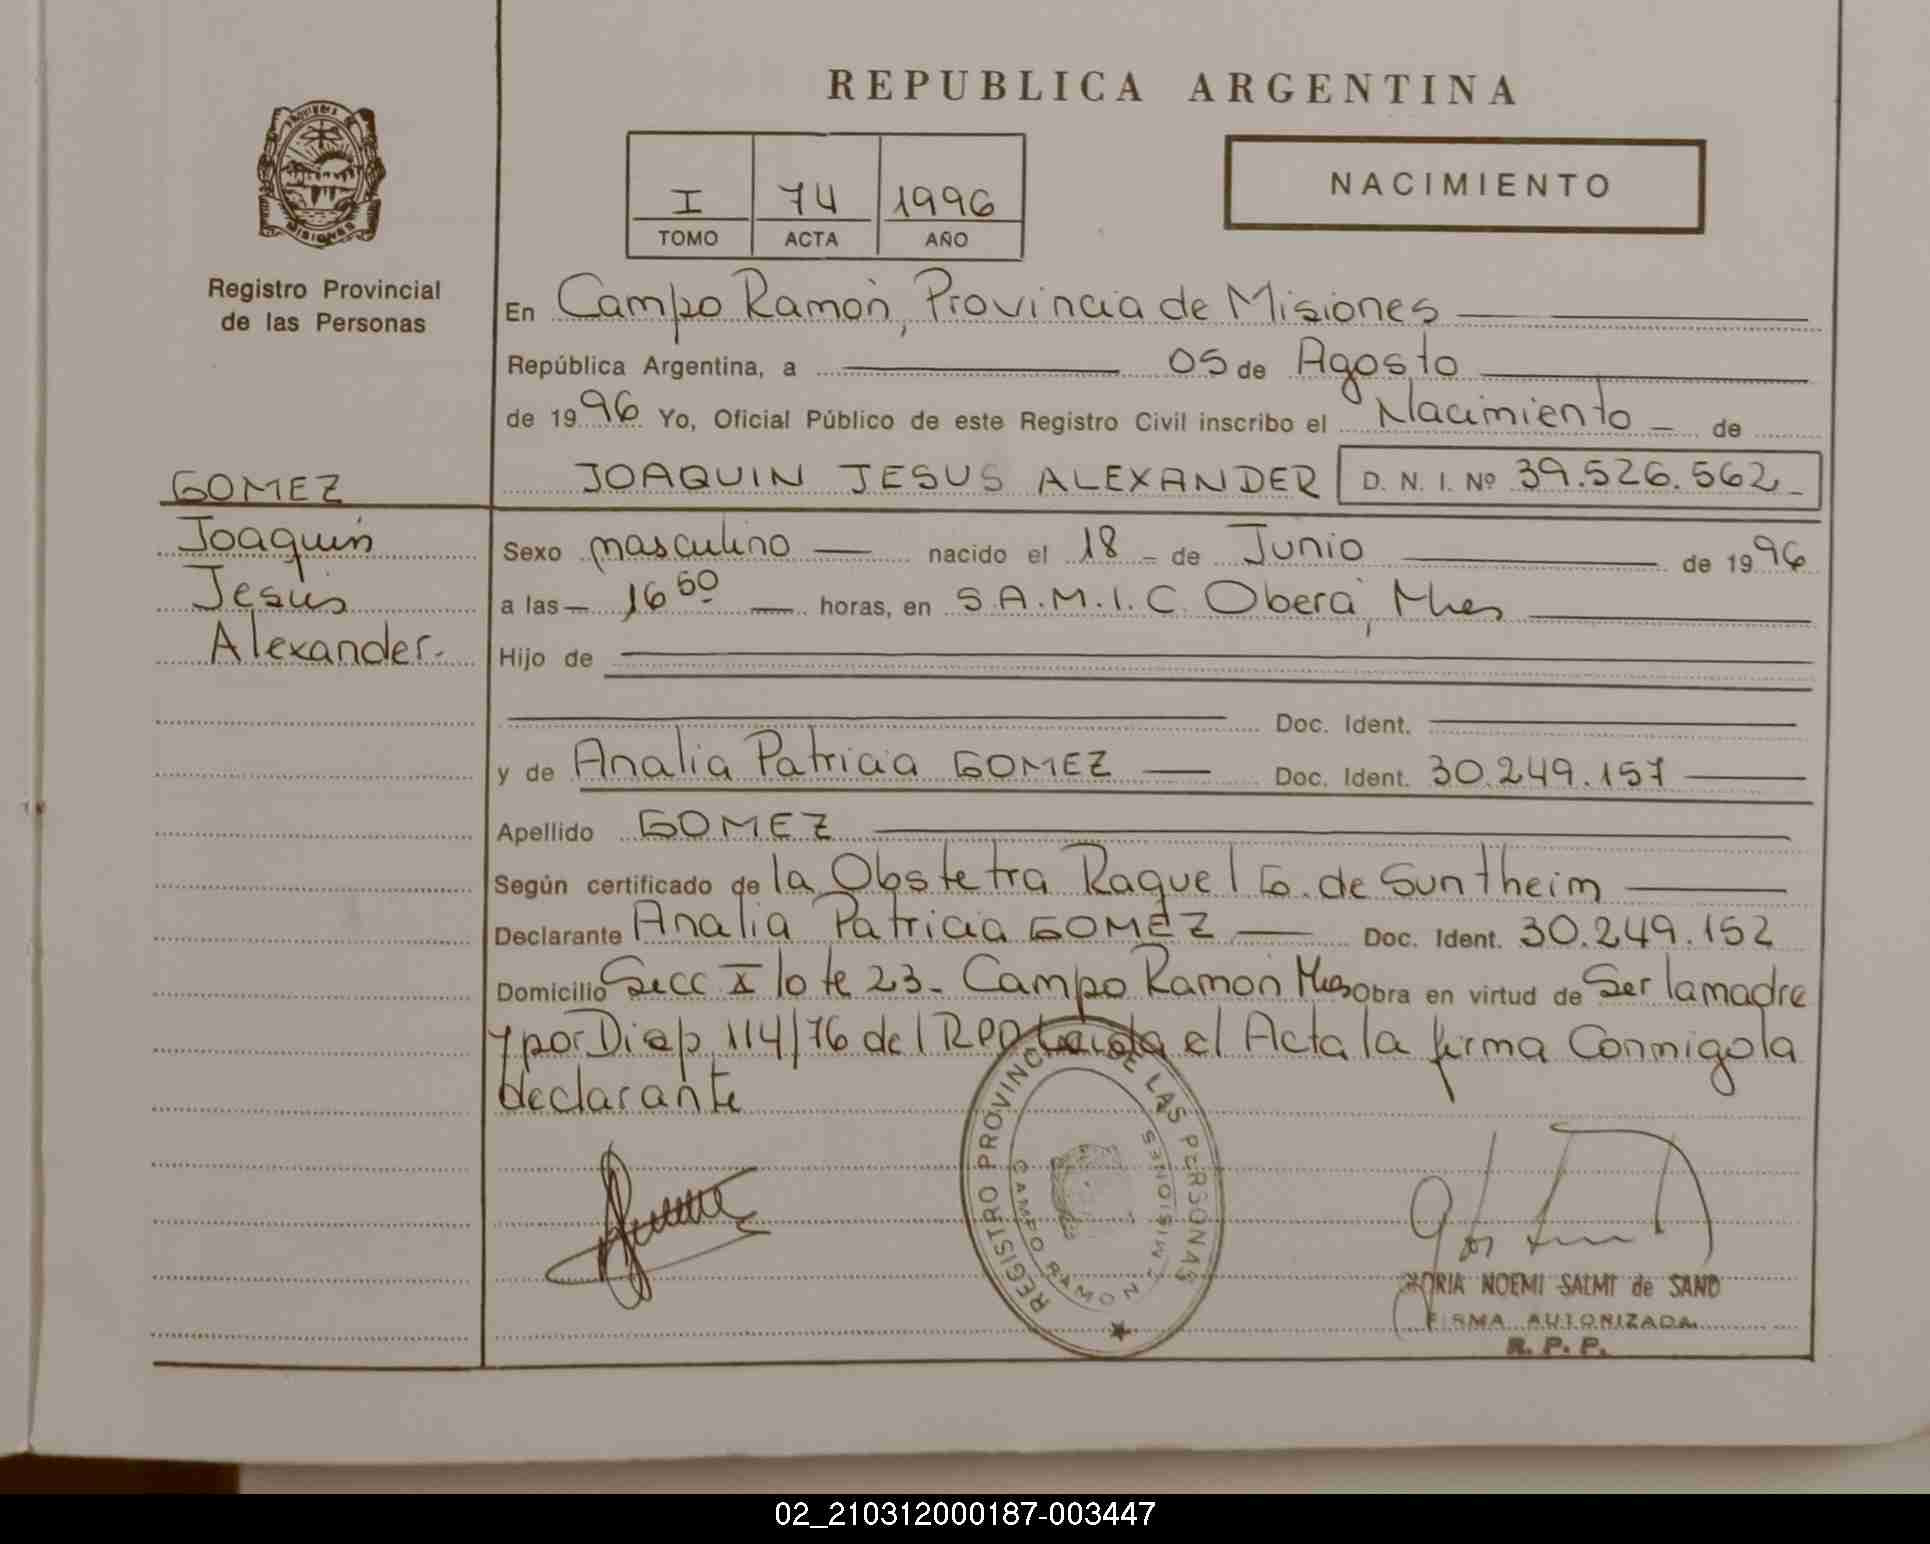 REPUBLICA ARGENTINA
PROVINCIA DE
MISIONES
Registro Provincial
de las Personas
I 74 1996
TOMO ACTA AÑO
NACIMIENTO
En Campo Ramón, Provincia de Misiones
República Argentina, a 05 de Agosto
de 1996 Yo, Oficial Público de este Registro Civil inscribo el Nacimiento de
JOAQUIN JESUS ALEXANDER D. N. I. Nº 39.526.562
GOMEZ
Joaquin
Jesús
Alexander.
Sexo masculino nacido el 18 de Junio de 1996
a las 16 50 horas, en S.A.M.I.C. Oberá, Mnes
Hijo de
Doc. Ident.
y de Analia Patricia GOMEZ Doc. Ident. 30.249.157
Apellido GOMEZ
Según certificado de la Obstetra Raquel G. de Suntheim
Declarante Analia Patricia GOMEZ Doc. Ident. 30.249.152
Domicilio Secc X lote 23 - Campo Ramón Mnes Obra en virtud de Ser la madre
y por Disp 114/76 del RPP Leida el Acta la firma Conmigo la
declarante
REGISTRO PROVINCIAL DE LAS PERSONAS
CAMPO RAMON - MISIONES
GLORIA NOEMI SALMI de SAND
FIRMA AUTORIZADA
R. P. P.
02_210312000187-003447